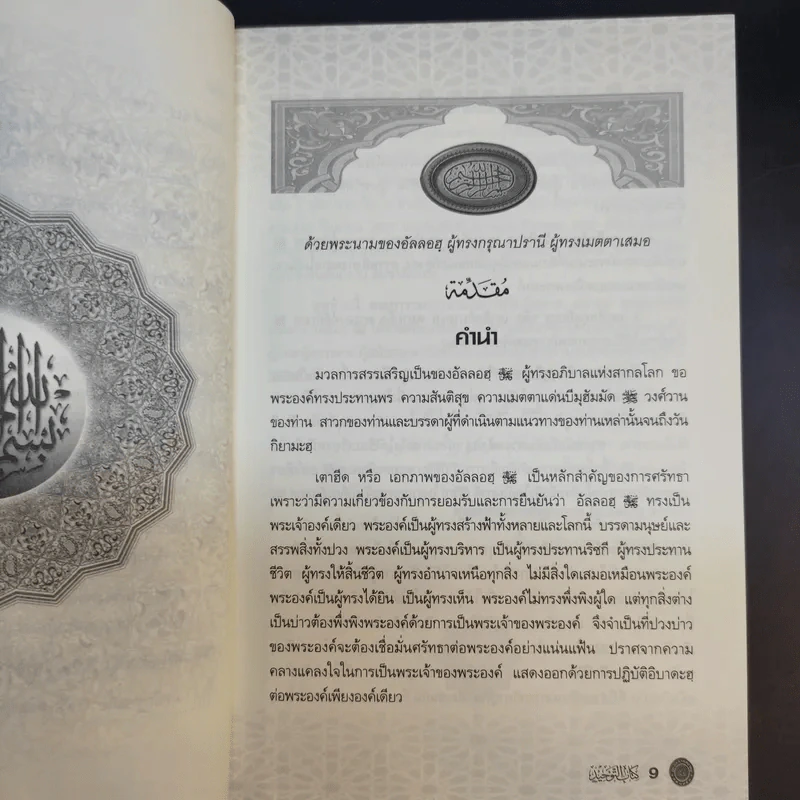 بسم الله
ด้วยพระนามของอัลลอฮฺ ผู้ทรงกรุณาปรานี ผู้ทรงเมตตาเสมอ
مُقَدِّمَة
คำนำ
มวลการสรรเสริญเป็นของอัลลอฮฺ ﷻ ผู้ทรงอภิบาลแห่งสากลโลก ขอ
พระองค์ทรงประทานพร ความสันติสุข ความเมตตาแด่นบีมุฮัมมัด ﷺ วงศ์วาน
ของท่าน สาวกของท่านและบรรดาผู้ที่ดำเนินตามแนวทางของท่านเหล่านั้นจนถึงวัน
กิยามะฮฺ
เตาฮีด หรือ เอกภาพของอัลลอฮฺ ﷻ เป็นหลักสำคัญของการศรัทธา
เพราะว่ามีความเกี่ยวข้องกับการยอมรับและการยืนยันว่า อัลลอฮฺ ﷻ ทรงเป็น
พระเจ้าองค์เดียว พระองค์เป็นผู้ทรงสร้างฟ้าทั้งหลายและโลกนี้ บรรดามนุษย์และ
สรรพสิ่งทั้งปวง พระองค์เป็นผู้ทรงบริหาร เป็นผู้ทรงประทานริซกี ผู้ทรงประทาน
ชีวิต ผู้ทรงให้สิ้นชีวิต ผู้ทรงอำนาจเหนือทุกสิ่ง ไม่มีสิ่งใดเสมอเหมือนพระองค์
พระองค์เป็นผู้ทรงได้ยิน เป็นผู้ทรงเห็น พระองค์ไม่ทรงพึ่งพิงผู้ใด แต่ทุกสิ่งต่าง
เป็นบ่าวต้องพึ่งพิงพระองค์ด้วยการเป็นพระเจ้าของพระองค์ จึงจำเป็นที่ปวงบ่าว
ของพระองค์จะต้องเชื่อมั่นศรัทธาต่อพระองค์อย่างแน่นแฟ้น ปราศจากความ
คลางแคลงใจในการเป็นพระเจ้าของพระองค์ แสดงออกด้วยการปฏิบัติอิบาดะฮฺ
ต่อพระองค์เพียงองค์เดียว
كتاب التوحيد 9